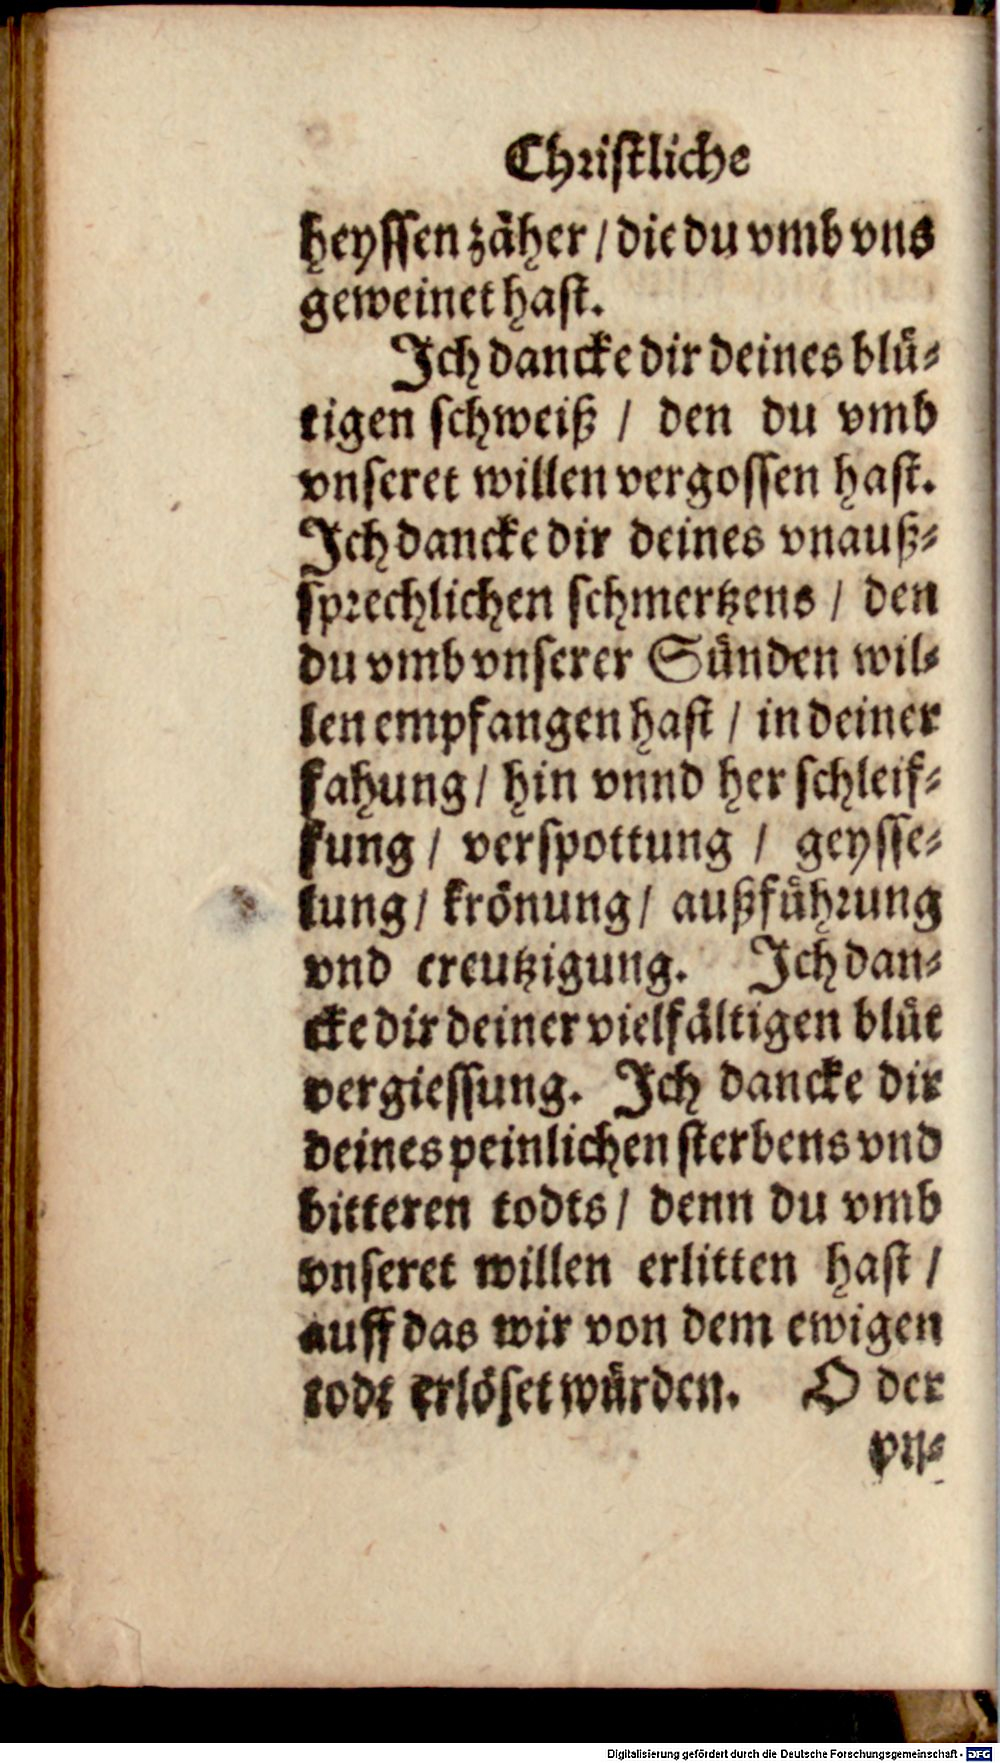 Christliche
heyssen zäher / die du vmb vns
geweinet hast.
Ich dancke dir deines blü-
tigen schweiß / den du vmb
vnseret willen vergossen hast.
Ich dancke dir deines vnauß-
sprechlichen schmertzens / den
du vmb vnserer Sünden wil-
len empfangen hast / in deiner
fahung / hin vnnd her schleif-
fung / verspottung / geysse-
lung / krönung / außführung
vnd creutzigung. Ich dan-
cke dir deiner vielfältigen blüt
vergiessung. Ich dancke dir
deines peinlichen sterbens vnd
bitteren todts / denn du vmb
vnseret willen erlitten hast /
auff das wir von dem ewigen
todt erlöset würden. O der
vn-
Digitalisierung gefördert durch die Deutsche Forschungsgemeinschaft - DFG